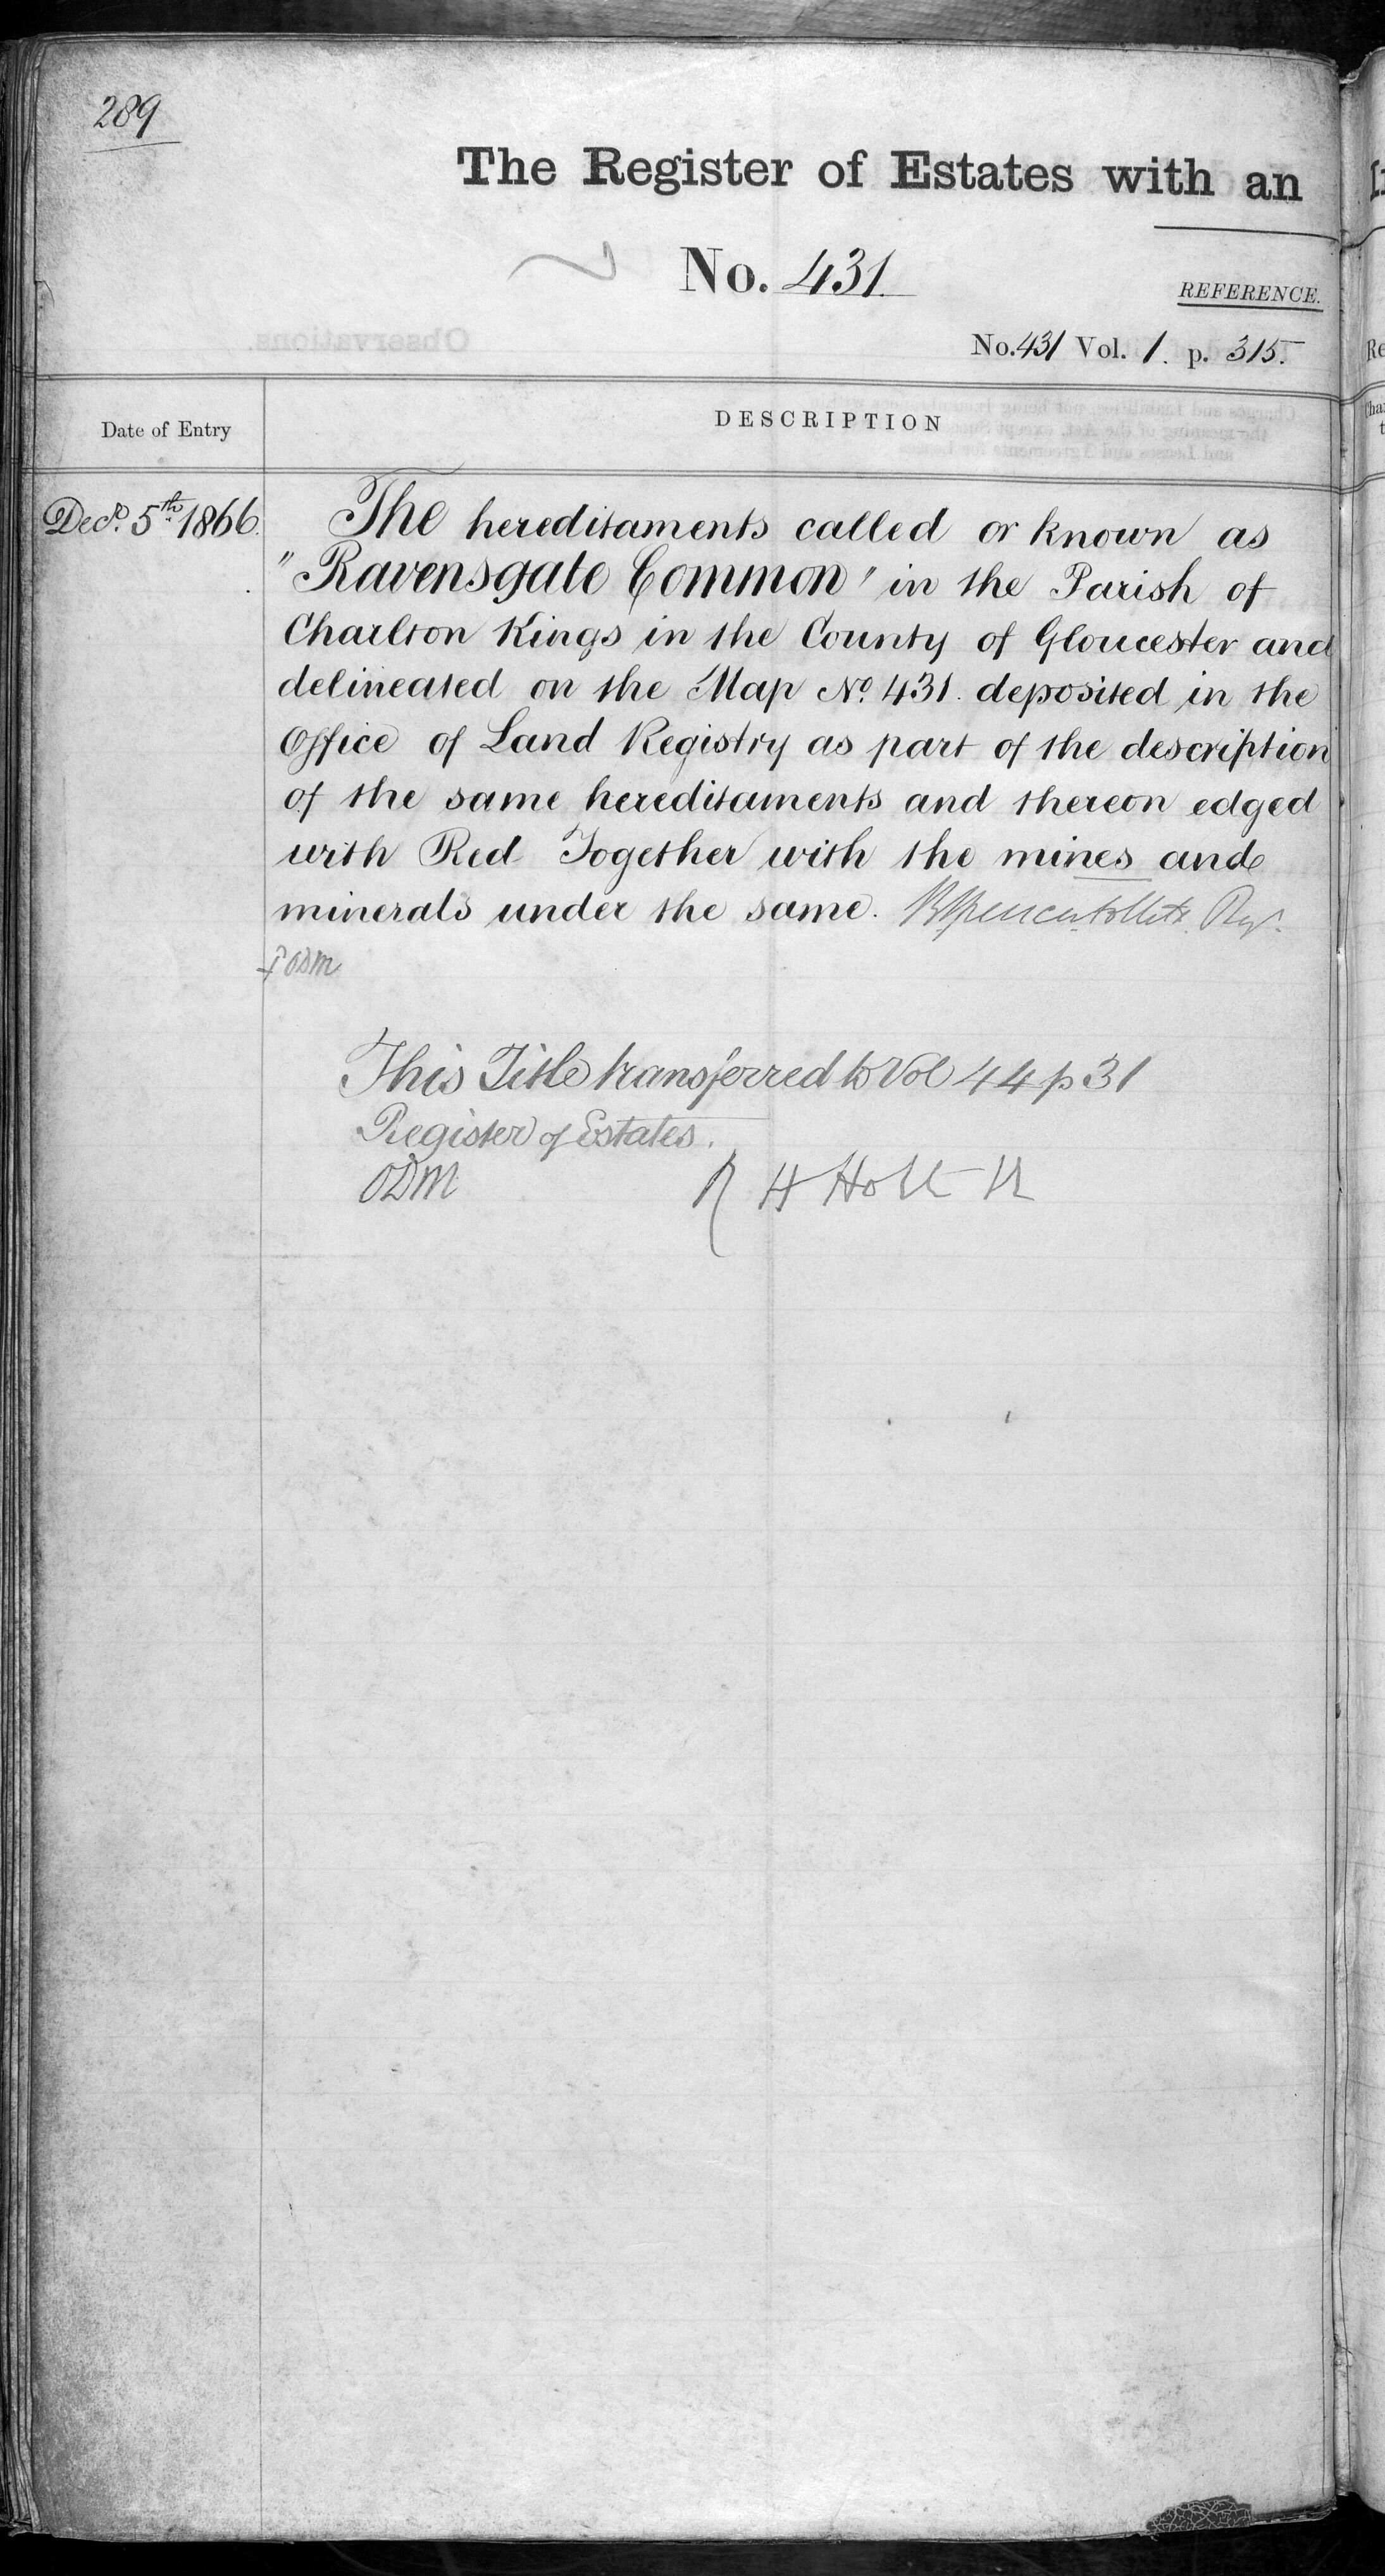 289
The Register of Estates with an
No. 431.
REFERENCE.
No. 431 Vol. 1. p. 315.
Date of Entry
DESCRIPTION
Decr. 5th 1866.
The hereditaments called or known as
"Ravensgate Common" in the Parish of
Charlton Kings in the County of Gloucester and
delineated on the Map No. 431. deposited in the
Office of Land Registry as part of the description
of the same hereditaments and thereon edged
with Red Together with the mines and
minerals under the same.
ODM
This Title transferred to Vol 44 p 31
Register of Estates.
ODM R H Holt